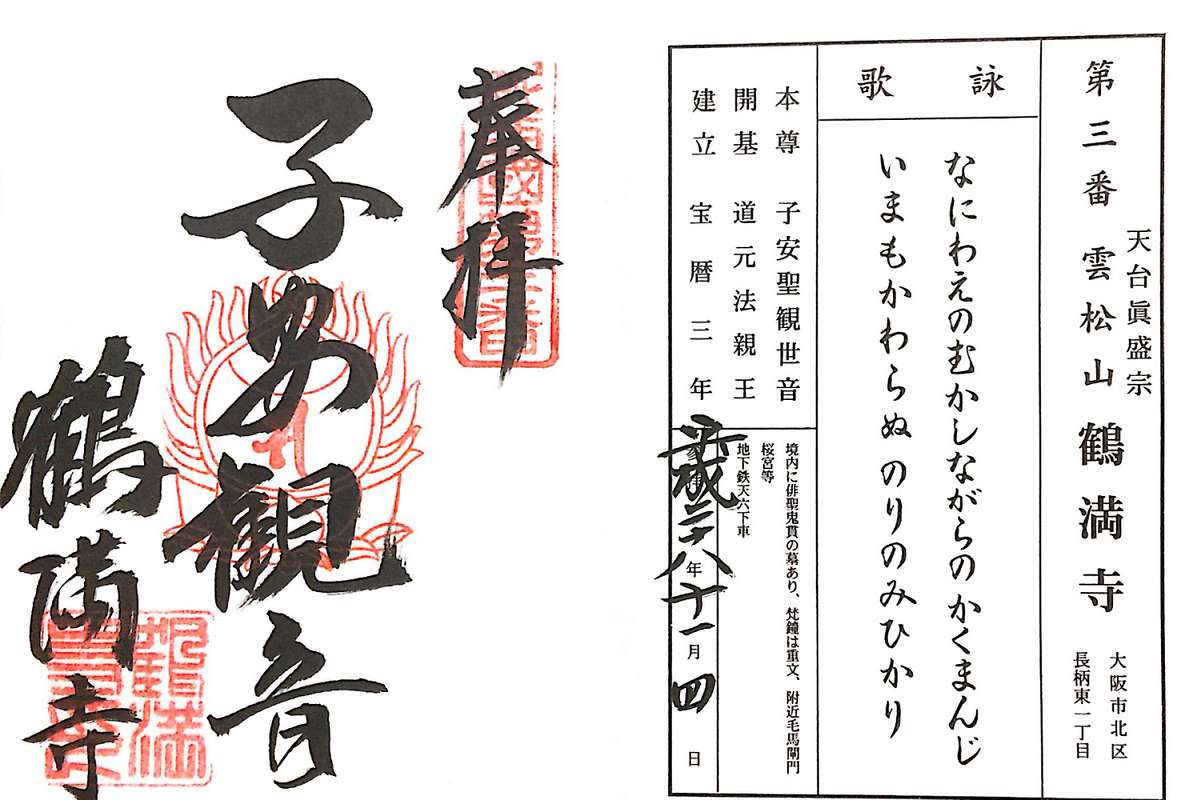 第三番 雲松山 鶴満寺
天台眞盛宗
大阪市北区
長柄東一丁目
詠歌
なにわえのむかしながらのかくまんじ
いまもかわらぬ のりのみひかり
本尊 子安聖観世音
開基 道元法親王
建立 宝暦三年
境内に俳聖鬼貫の墓あり、梵鐘は重文、附近毛馬閘門
桜宮等
地下鉄天六下車
平成二十八年十一月四日
奉拝
子安観音
鶴満寺